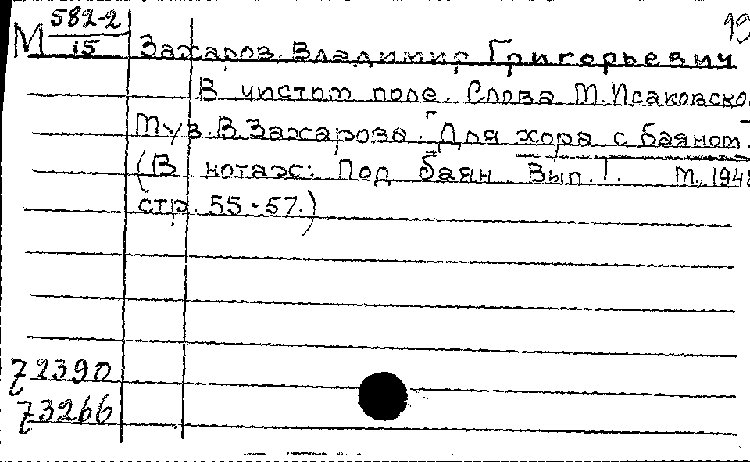 М 582-2
15
19
Захаров Владимир Григорьевич
В чистом поле. Слова М.Исаковско
Муз.В.Захарова. [Для хора с баяном.]
(В нотах: Под баян. Вып.I. М.194
стр. 55-57.)
72390
73266